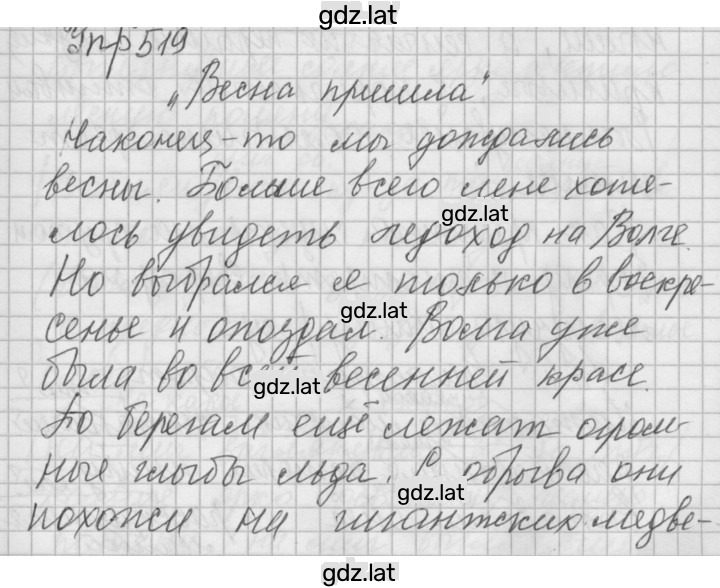 gdz.lat
Упр 519
„Весна пришла"
Наконец-то мы дождались
весны. Больше всего мне хоте-
gdz.lat
лось увидеть ледоход на Волге.
Но выбрался я только в воскре-
gdz.lat
сенье и опоздал. Волга уже
была во всей весенней красе.
gdz.lat
По берегам ещё лежат огром-
ные глыбы льда. С обрыва они
gdz.lat
похожи на гигантских медве-
gdz.lat